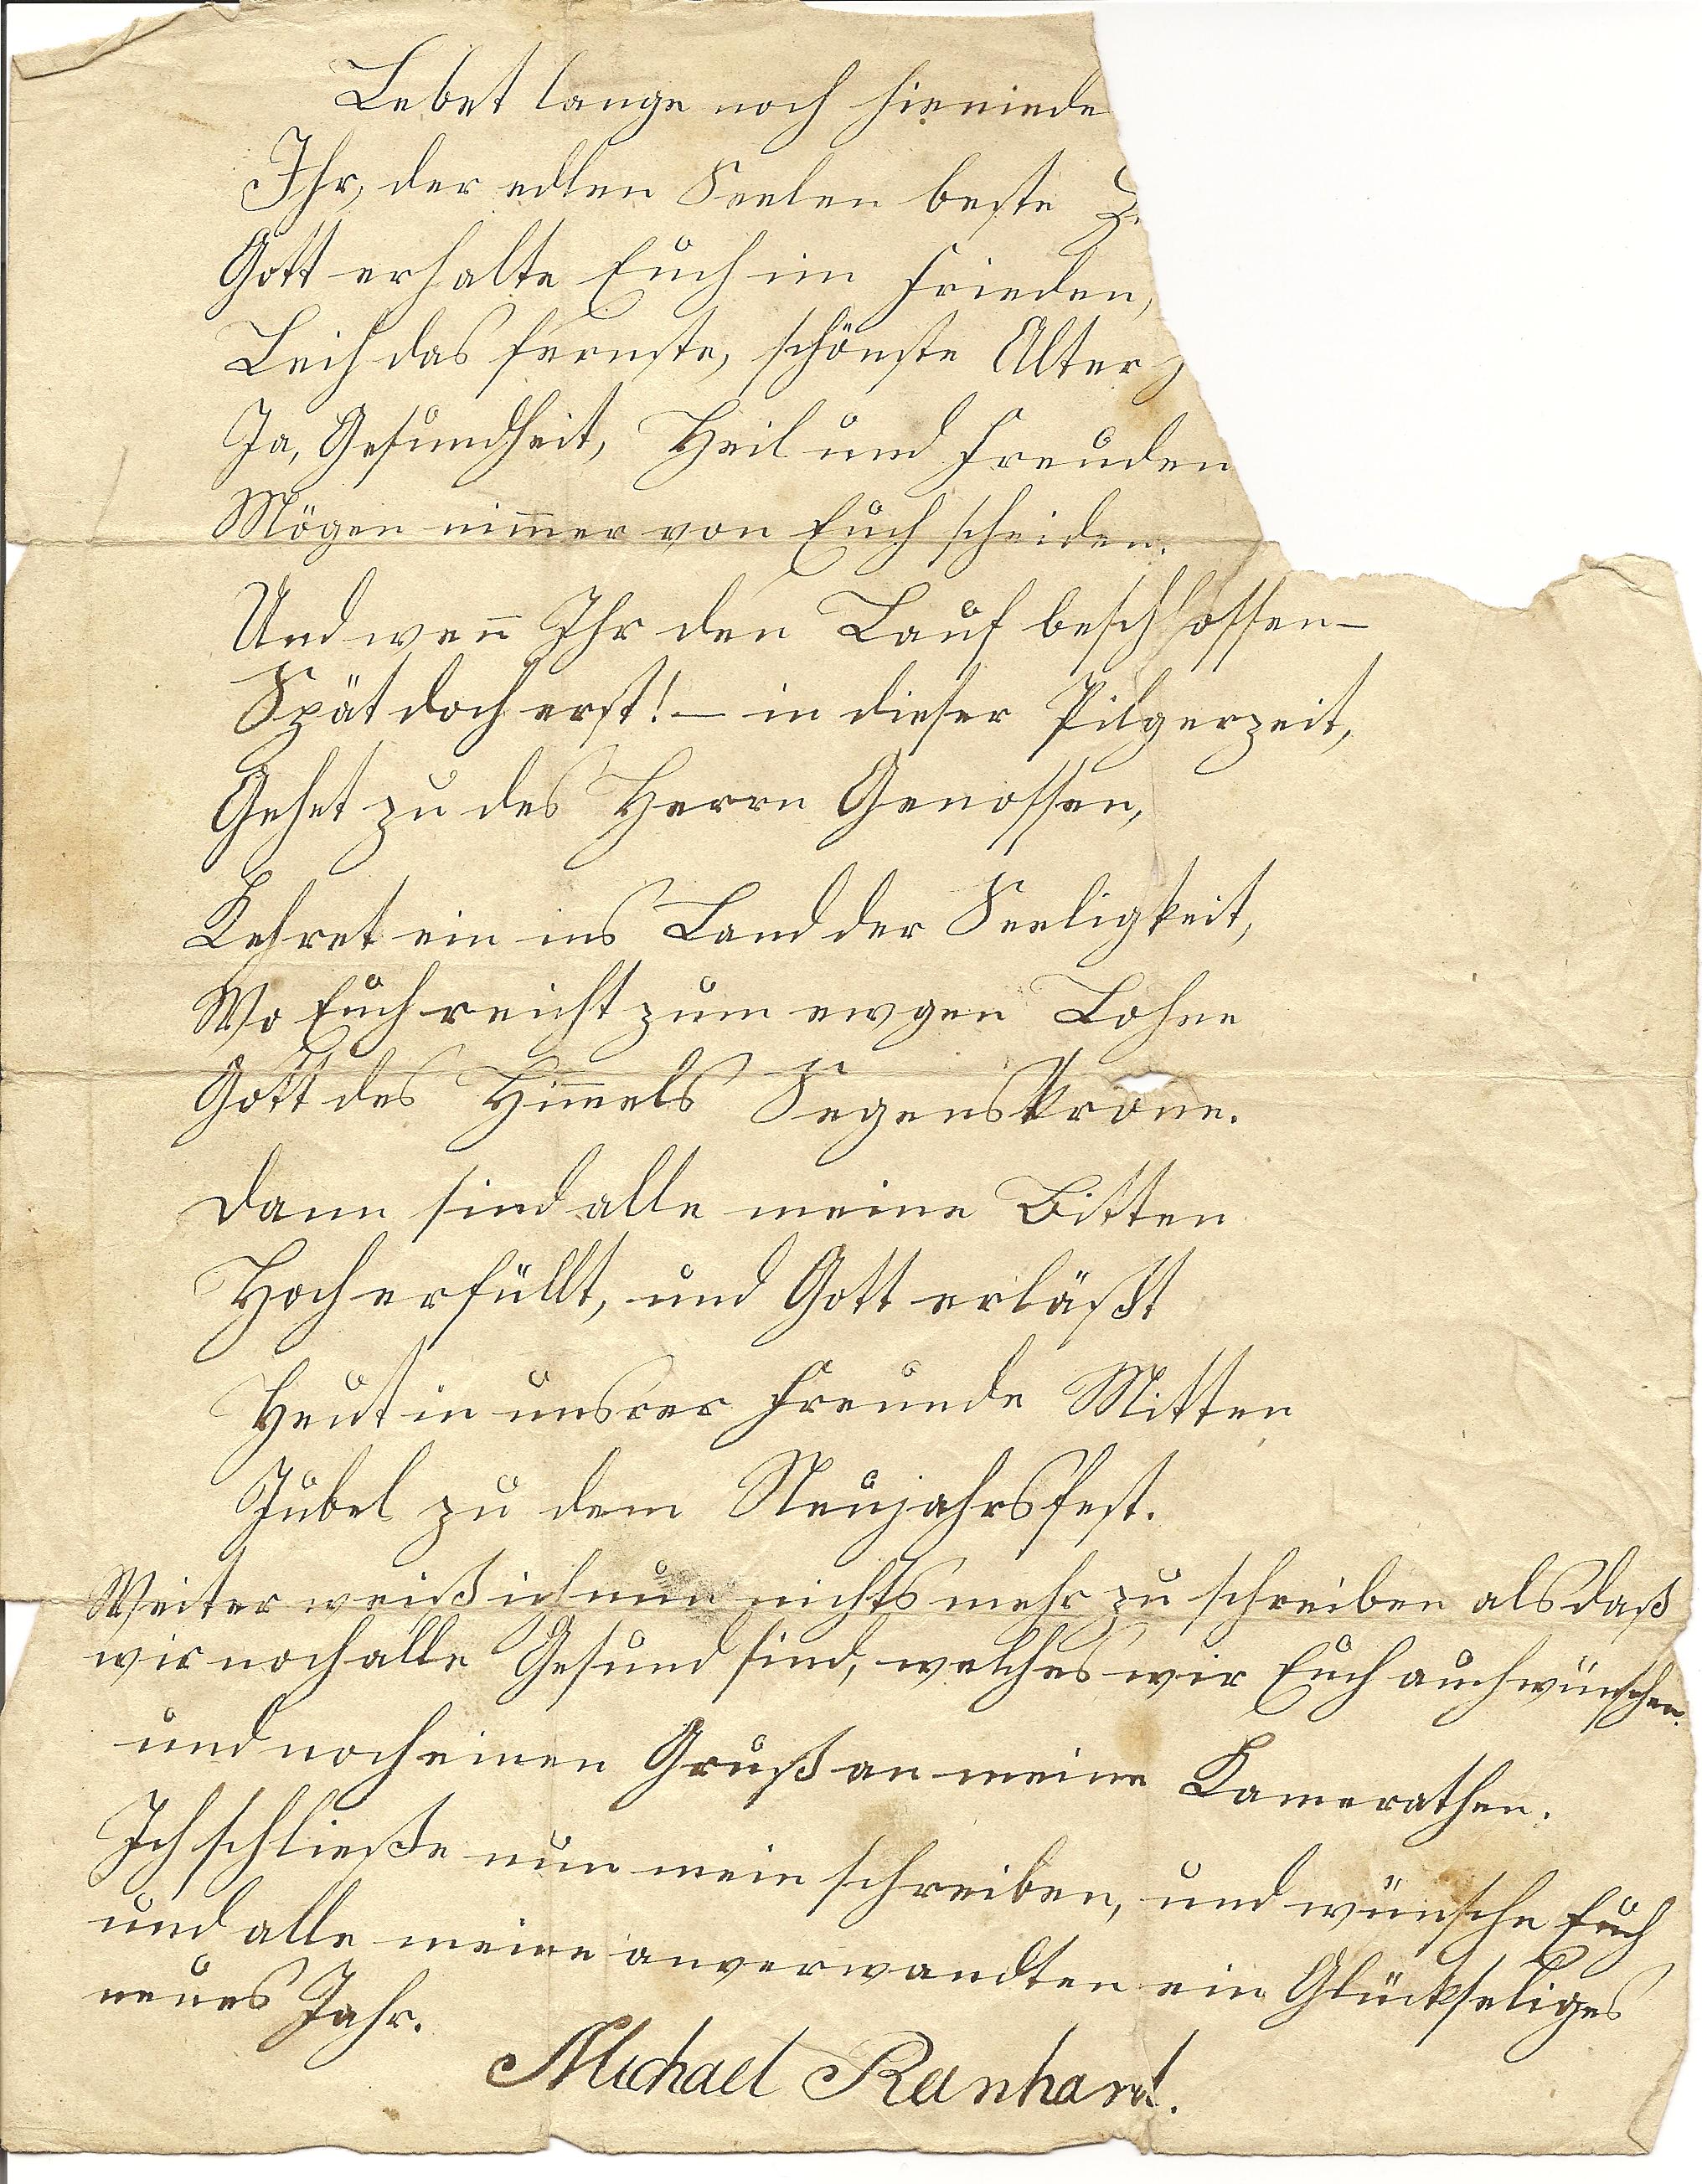 Lebet lange noch hieniede
Ihr, der edlen Seelen beste
Gott erhalte Euch im Frieden,
Leih das fernste, schönste Alter
Ja, Gesundheit, Heil und Freuden
Mögen nim̅er von Euch scheiden.
Und wen̅ Ihr den Lauf beschlossen–
Spät doch erst! – in dieser Pilgerzeit,
Gehet zu des Herrn Genossen,
Kehret ein ins Land der Seeligkeit,
Wo Euch reicht zum ewgen Lohne
Gott des Him̅els Segenskrone.
Dann sind alle meine Bitten
Hoch erfüllt, und Gott erläßt
Heut in unsrer Freunde Mitten
Jubel zu dem Neujahrsfest.
Weiter weiß ich nun nichts mehr zu schreiben als daß
wir noch alle Gesund sind, welches wir Euch auch wünschen.
und noch einen Gruß an meine Kamerathen.
Ich schließe nun mein schreiben, und wünsche Euch
und alle meine anverwandten ein Glückseliges
neues Jahr.
Michael Reinhard.